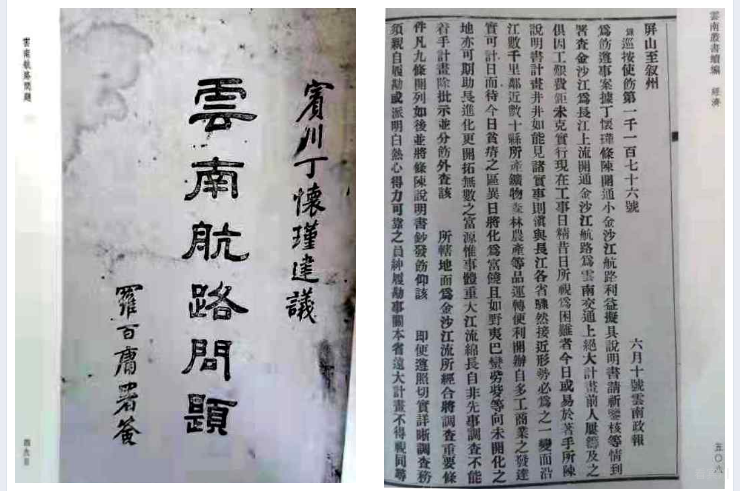 雲南航路問題
賓川丁懷瑾建議
雲南航路問題
羅百庸署簽
雲南叢書續編 經濟
屏山至叙州
錄巡按使飭第一千一百七十六號 六月十號雲南政報
為飭遵事案據丁懷瑾條陳開通小金沙江航路利益擬具說明書請祈鑒核等情到
署查金沙江為長江上流開通金沙江航路為雲南交通上絕大計畫前人屢籌及之
俱因工艱費鉅未克實行現在工事日精昔日所視為困難者今日或易於著手所陳
說明書計畫井井如能見諸實事則滇與長江各省驟然接近形勢必為之一變而沿
江數千里鄰近數十縣所產鑛物森林農產等品運轉便利開辦自多工商業之發達
實可計日而待今日貧瘠之區異日將化為富饒且如野夷巴蠻等向未開化之
地亦可期助長進化更開拓無數之富源惟事體重大江流綿長自非先事調查不能
着手計畫除批示並分飭外查該 所轄地面為金沙江流所經合將調查重要條
件凡九條開列如後並將條陳說明書鈔發飭仰該 即便遵照切實詳晰調查務
須親自履勘或派明白熱心得力可靠之員紳履勘事關本省遠大計畫不得視同尋
五〇八